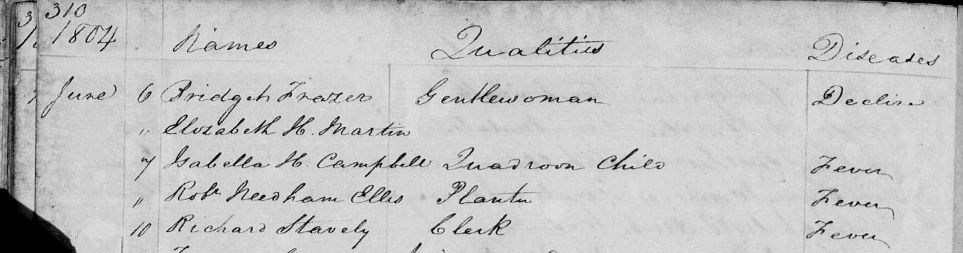 310
1804 Names Qualities Diseases
June 6 Bridget Frazer Gentlewoman Decline
" Elizabeth H. Martin
7 Isabella H. Campbell Quadroon Child Fever
" Robt Needham Ellis Planter Fever
10 Richard Stavely Clerk Fever